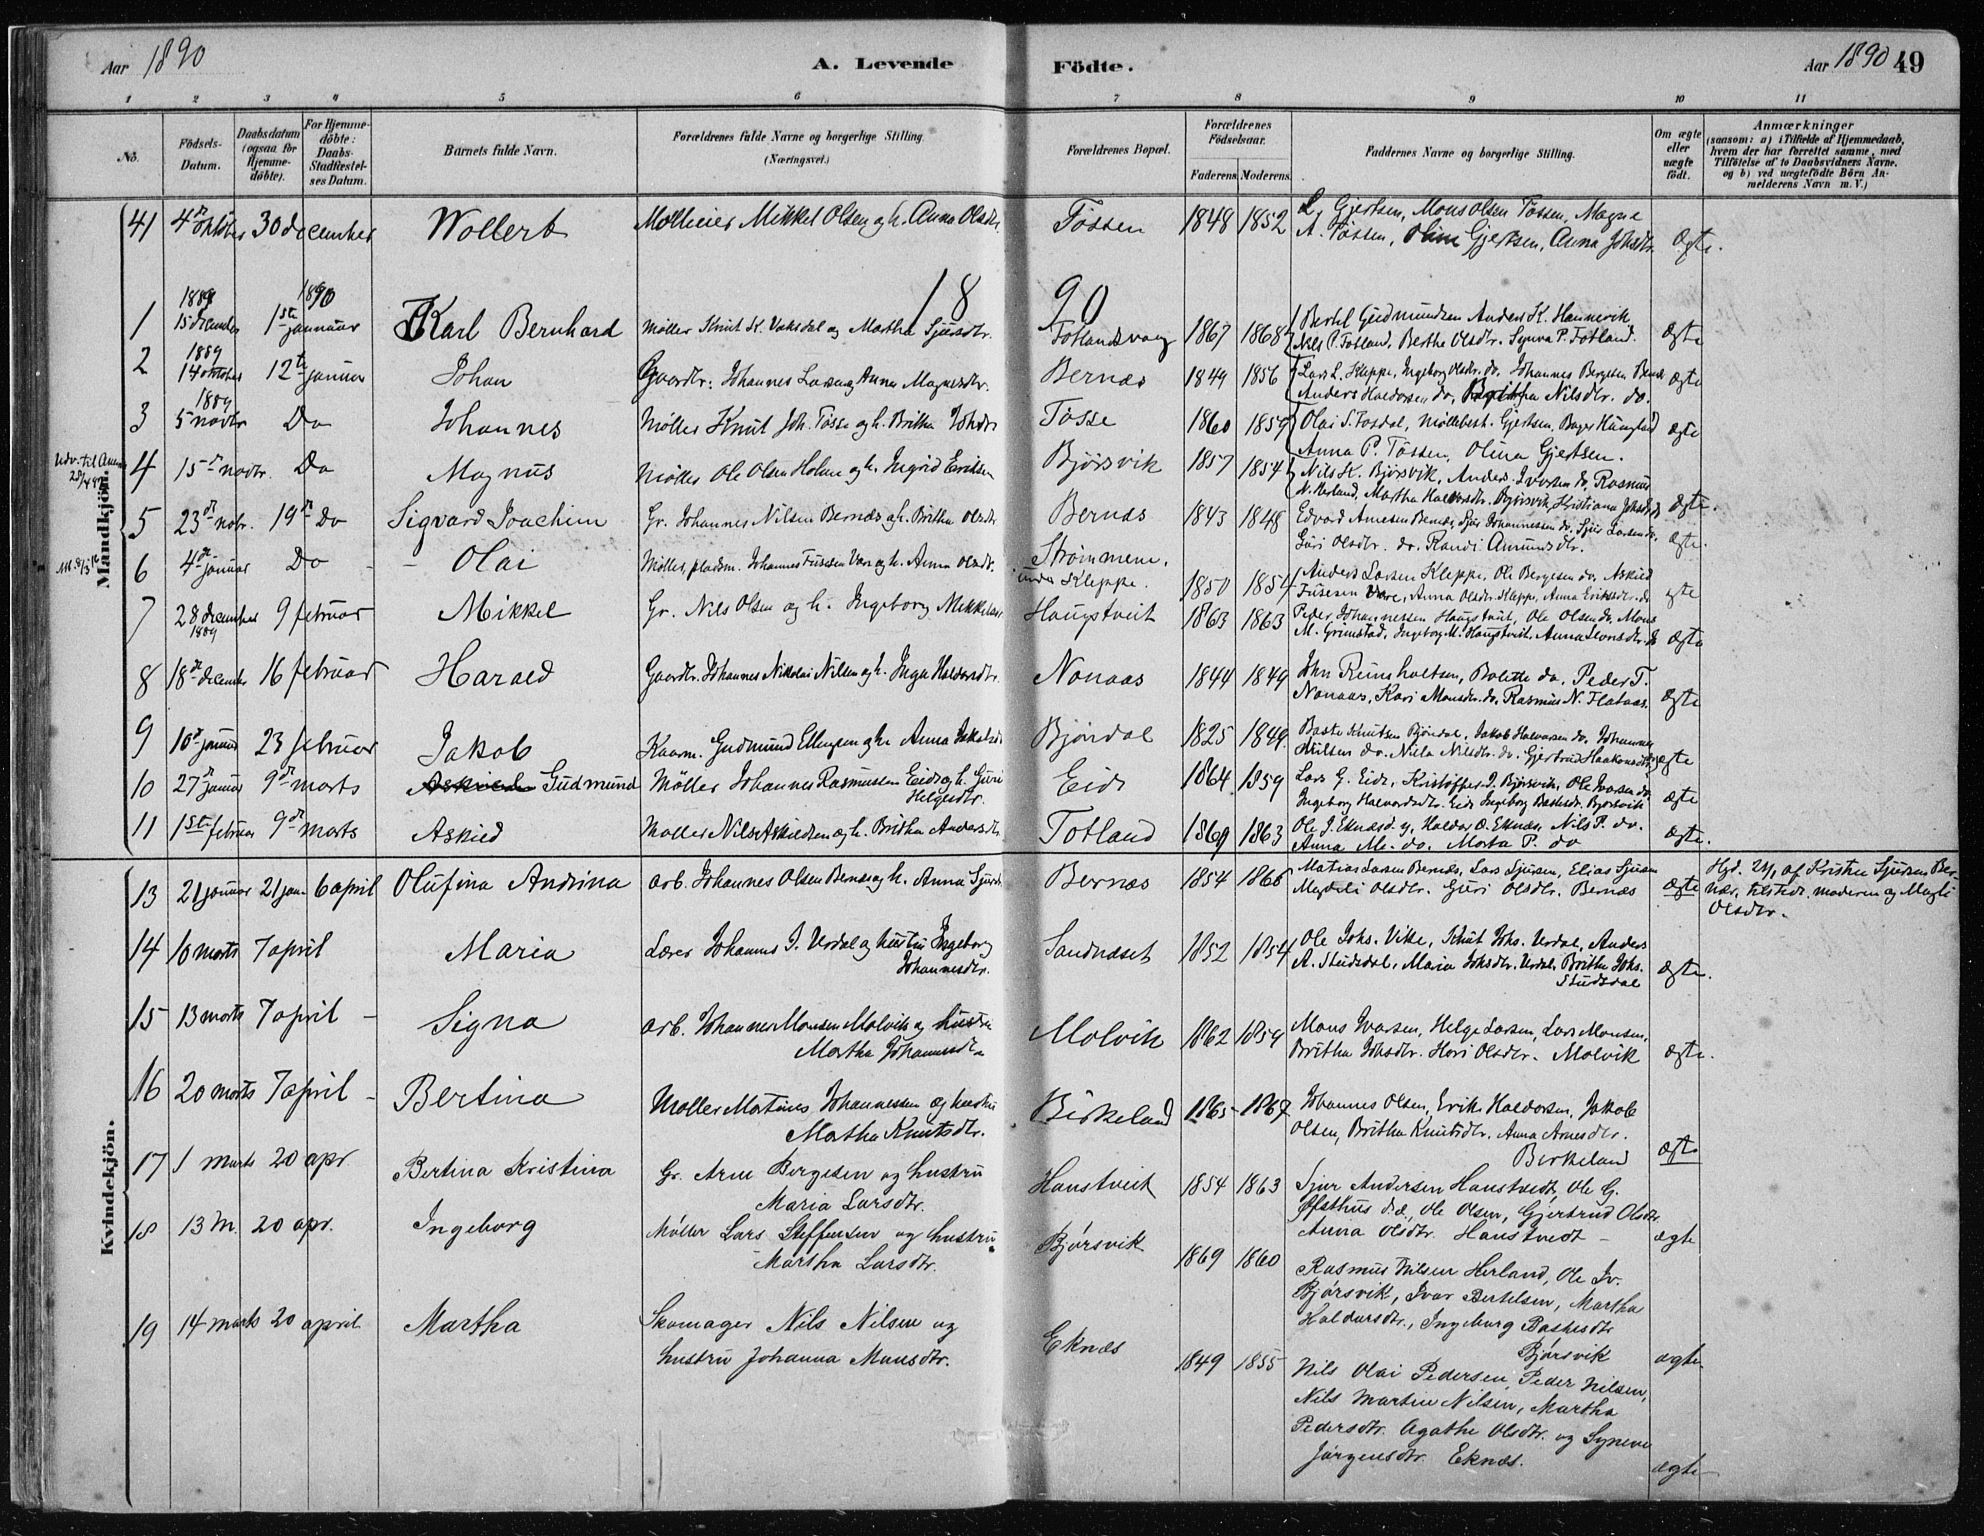 Aar 1890
A. Levende
Födte.
Aar 1890 49
1 2 3 4 5 6 7 8 9 10 11
No.
Födsels-Datum.
Daabsdatum (ogsaa for Hjemmedöbte).
For Hjemmedöbte: Daabs-Stadfæstelses Datum.
Barnets fulde Navn.
Forældrenes fulde Navne og borgerlige Stilling. (Næringsvei.)
Forældrenes Bopæl.
Forældrenes Födselsaar.
Faderens. Moderens.
Faddernes Navne og borgerlige Stilling.
Om ægte eller uægte födt.
Anmærkninger
(saasom: a) i Tilfælde af Hjemmedaab, hvem der har forrettet samme, med Tilföielse af to Daabsvidners Navne, og b) ved uægtefödte Börn Anmelderens Navn m. V.)
Mandkjön.
41 4de oktober 30 december Wollert Mikkel Olsen og h. Anna Olsdtr. Tossen 1848 1852 L. Gjertsen, Mons Olsen Tossen, Magne
A. Tossen, Olina Gjertsen, Anna Johsdtr. Ægte.
1889 1890
18 90
1 15 december 1ste januar Karl Bernhard Møller Knut K. Vaksdal og Martha Sjursdtr. Totlandsvaag 1867 1868 Bertel Gudmundsen Anders K. Hannevik
Nils P. Totland, Berthe Olsdtr. Synva P. Totland. Ægte
1889
2 14 oktober 12te januar Johan Gaardbr. Johannes Larsen og Anna Magnesdtr. Bernæs 1849 1856 Lars L. Kleppe, Ingeborg Olsdtr. do. Johannes Bergesen Bernæs
Anders Haldorsen do, Britha Nilsdtr. do. Ægte
1889
3 5 novbr. Do Johannes Møller Knut Joh. Tosse og h. Britha Johsdtr Tosse 1860 1859 Olai S. Fosdal, Møllebest. Gjertsen,
Anna P. Tossen, Olina Gjertsen. Ægte
4 15de novbr. Do Magnus Møller Ole Olsen Holme og h. Ingrid Bjørsvik 1857 1854 Nils K. Bjørsvik, Anders Ivarsen do, Rasmus
N. Herland, Martha Halvorsdtr. Bjørsvik, Kristiana Johsdtr. do Ægte.
5 23de nobr. 19de Do Sigvard Joachim Gr. Johannes Nilsen Bernæs og h. Britha Olsdtr Bernæs 1843 1848 Edvard Arnesen Bernæs, Sjur Johannessen do. Sjur Larsen do.
Guri Olsdtr. do. Randi Amundsdtr. Ægte.
6 4de januar Do Olai Møller, pladsm. Johannes og h. Anna Olsdtr. Strømmene,
under Kleppe. 1850 1854 Anders Larsen Kleppe, Ole Bergesen do. Askied
Anna Olsdtr. Kleppe, Anna Eriksdtr. do Ægte
7 28 december 9 februar Mikkel Gr. Nils Olsen og h. Ingeborg Mikkelsdtr Haugstveit 1863 1863 Peder Johannessen Haugstveit, Ole Olsen do, Mons
1889 M. Grimstad, Ingeborg M. Haugstveit, Anna Ægte
8 18de december 16 februar Harald Gaardbr. Johannes Nikolai Nilsen og h. Inga Haldorsdtr. Nonaas 1844 1849 John Reinholtsen, Bolette do, Peder T.
Nonaas, Kari Monsdtr. do, Rasmus N. Flataas. Ægte
9 10de januar 23 februar Jakob Gudmund Ellingsen og h. Anna Jakobsdtr Bjørndal 1825 1849 Baste Knutsen Bjørndal, Jakob Halvorsen do, Johannes
Nilsen do. Niela Nilsdtr. do. Gjertrud Haakonsdtr. Ægte
10 27de januar 9de marts Gudmund Møller Johannes Rasmussen Eide og h. Guri
Helgesdtr. Eide 1864 1859 Lars G. Eide, Kristoffer J. Bjørsvik, Ole Ivarsen do.
Ingeborg Halvordsdtr. Eide Ingeborg Bastesdtr. Bjørsvik Ægte
11 1ste februar 9de marts Askied Møller Nils Askiedsen og h. Britha Andersdtr. Totland 1869 1863 Ole J. Eknæs d. y, Haldor O. Eknæs, Nils P. do.
Anna M. do. Marta P. do Ægte.
Kvindekjön.
13 21 januar 21 jan 6 april Olufina Andrina Arb. Johannes Olsen Bernæs og h. Anna Sjursdtr Bernæs 1854 1865 Matias Larsen Bernæs, Lars Sjursen, Elias Sjursen
Magdeli Olsdtr. Guri Olsdtr. Bernæs Ægte Hjd. 21/1 af Kristen Sjursen Ber-
næs, tilstede moderen og Magli
Olsdtr.
14 10 marts 7 april Maria Lærer Johannes J. Verdal og hustru Ingeborg
Johannesdtr. Sandvdset 1852 1854 Ole Johs. Vike, Knut Johs. Verdal, Anders
A. Studsdal, Maria Johsdtr. Verdal, Britha Johs.
Studsdal Ægte.
15 13 marts 7 april - Signa Arb. Johannes Monsen Molvik og hustru
Martha Johannesdtr Molvik 1862 1859 Mons Ivarsen, Helge Larsen, Lars Monsen,
Britha Johsdtr. Kari Olsdtr. Molvik Ægte.
16 20 marts 7 april - Bertina Møller Martines Johannessen og hustru
Martha Knutsdtr. Birkeland 1865 1867 Johannes Olsen, Erik Haldorsen, Jakob
Olsen, Britha Knutsdtr. Anna Arnesdtr.
Birkeland Ægte
17 1 marts 20 apr. Bertina Kristina Gr. Arne Bergesen og hustru
Maria Larsdtr. Hanstveit 1854 1863 Sjur Andersen Hanstvedt, Ole G.
Øfsthus d.æ, Ole Olsen, Gjertrud Olsdtr.
Anna Olsdtr. Hanstvedt - ægte
18 13 M. 20 apr. Ingeborg Møller Lars Steffensen og hustru
Martha Larsdtr. Bjørsvik 1869 1860 Rasmus Nilsen Herland, Ole Iv.
Bjørsvik, Ivar Bertelsen, Martha
Haldorsdtr., Ingeborg Bastesdtr
Bjørsvik ægte
19 14 marts 20 april Martha Skomager Nils Nilsen og
hustru Johanna Monsdtr. Eknæs 1849 1855 Nils Olai Pedersen, Peder Nilsen,
Nils Martin Nilsen, Martha
Pedersdtr. Agathe Olsdtr. og Syneve
Jørgensdtr. Eknæs. ægte